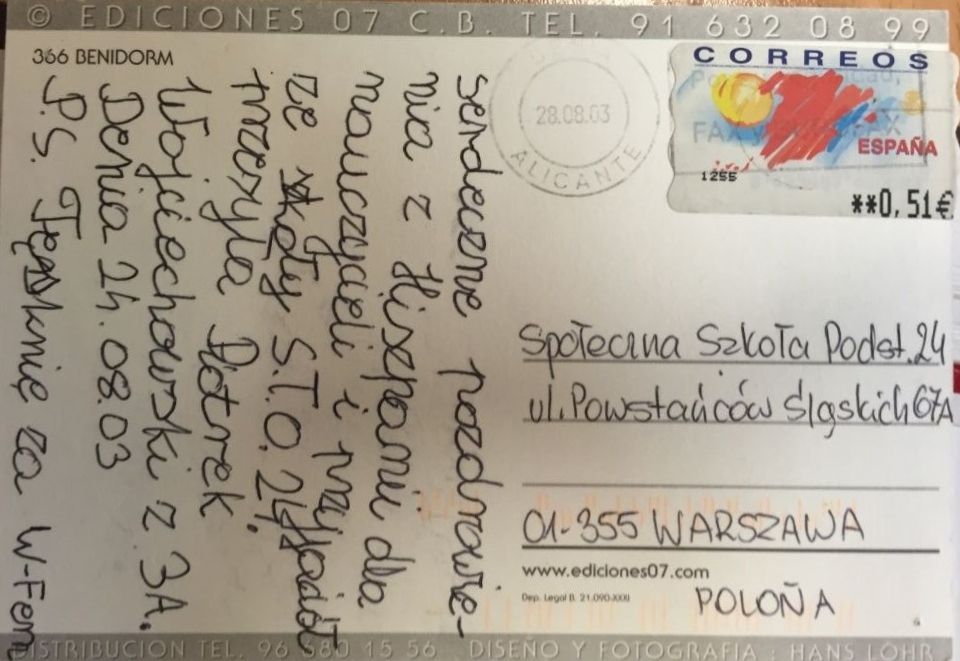 © EDICIONES 07 C.B. TEL. 91 632 08 99
366 BENIDORM
serdeczne pozdrowie-
nia z Hiszpanii dla
nauczycieli i przyjaciół
ze szkoły S.T.O. 24,
przesyła Piotrek
Wojciechowski z 3A.
Denia 24.08.03
P.S. Tęsknię za W-Fem
28.08.03
ALICANTE
CORREOS
ESPAÑA
1255
**0,51€
Społeczna Szkoła Podst. 24
ul. Powstańców Śląskich 67A
01-355 WARSZAWA
www.ediciones07.com
Dep. Legal B. 21.090-XXXII
POLOÑA
DISTRIBUCION TEL. 96 680 15 56 DISEÑO Y FOTOGRAFIA : HANS LÖHR